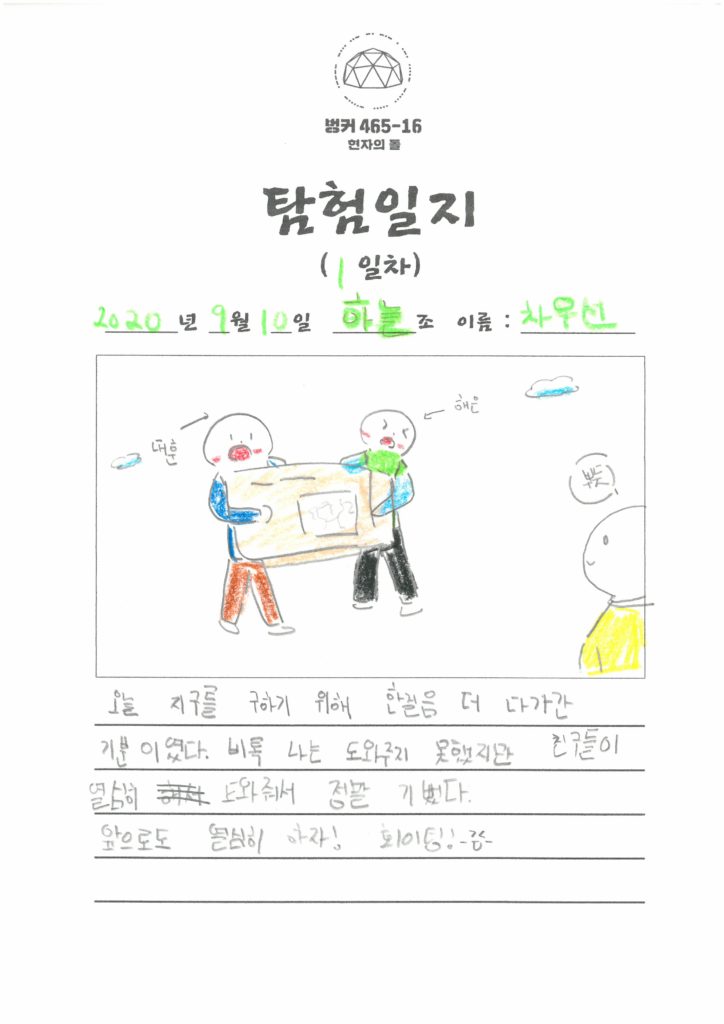 벙커 465-16
현자의 돌
탐험일지
(1 일차)
2020년 9월 10일 하늘조 이름 : 차우선
태훈
해은
뿌듯
오늘 지구를 구하기 위해 한걸음 더 다가간
기분이였다. 비록 나는 도와주지 못했지만 친구들이
열심히 도와줘서 정말 기뻤다.
앞으로도 열심히 하자! 화이팅! -끝-